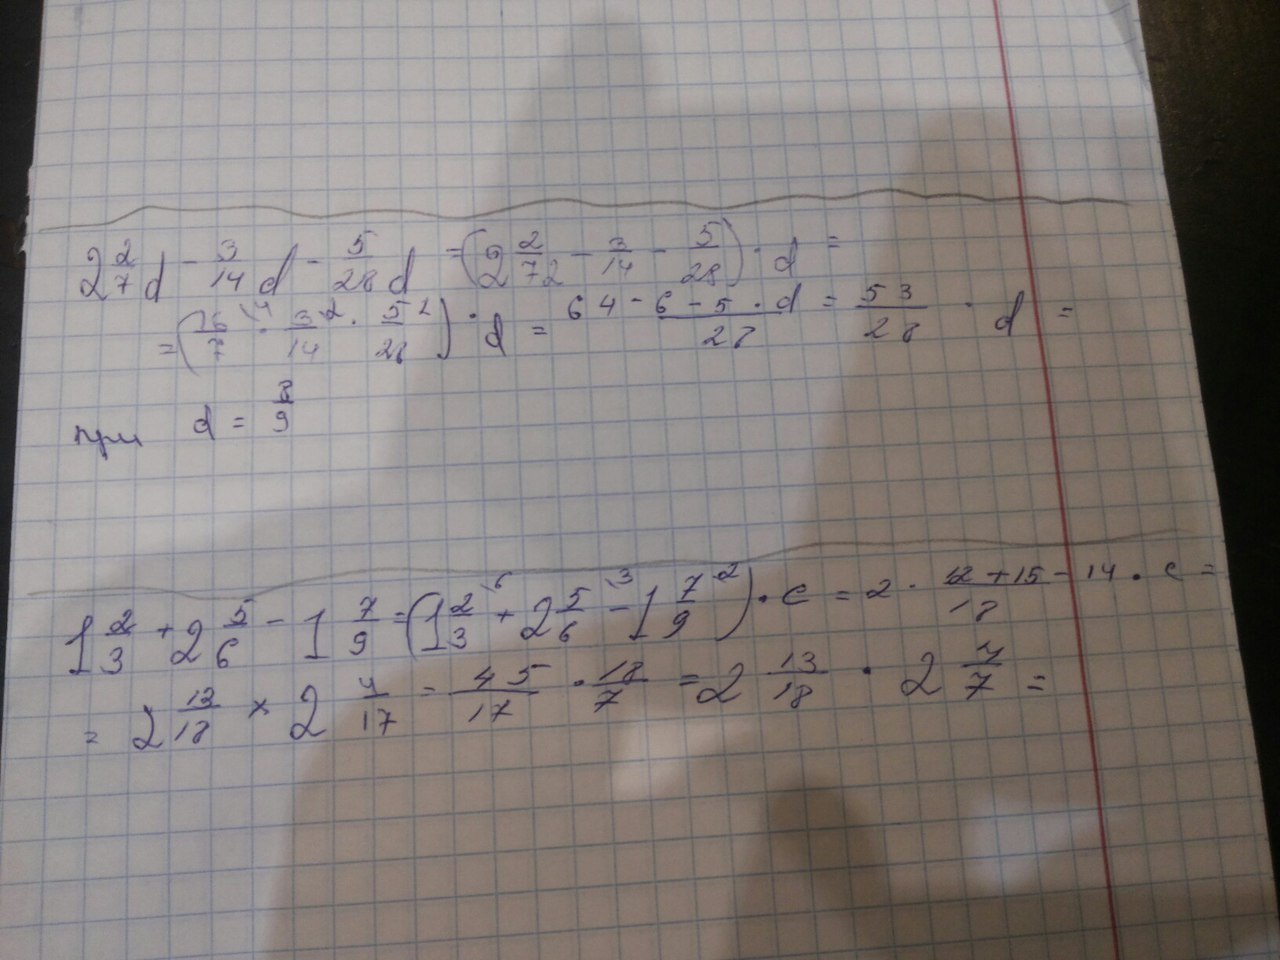 2 2/7 d - 3/14 d - 5/28 d = (2 2/7 2 - 3/14 - 5/28) · d =
= (16/7 \4 · 3/14 \2 · 5/28 \1) · d = 64 - 6 - 5 · d / 28 = 53/28 · d =
при d = 8/9
1 2/3 + 2 5/6 - 1 7/9 = (1 2/3 \6 + 2 5/6 \3 - 1 7/9 \2) · c = 2 · 12 + 15 - 14 / 18 · c =
= 2 13/18 × 2 4/17 = 45/17 · 18/7 = 2 13/18 · 2 4/7 =